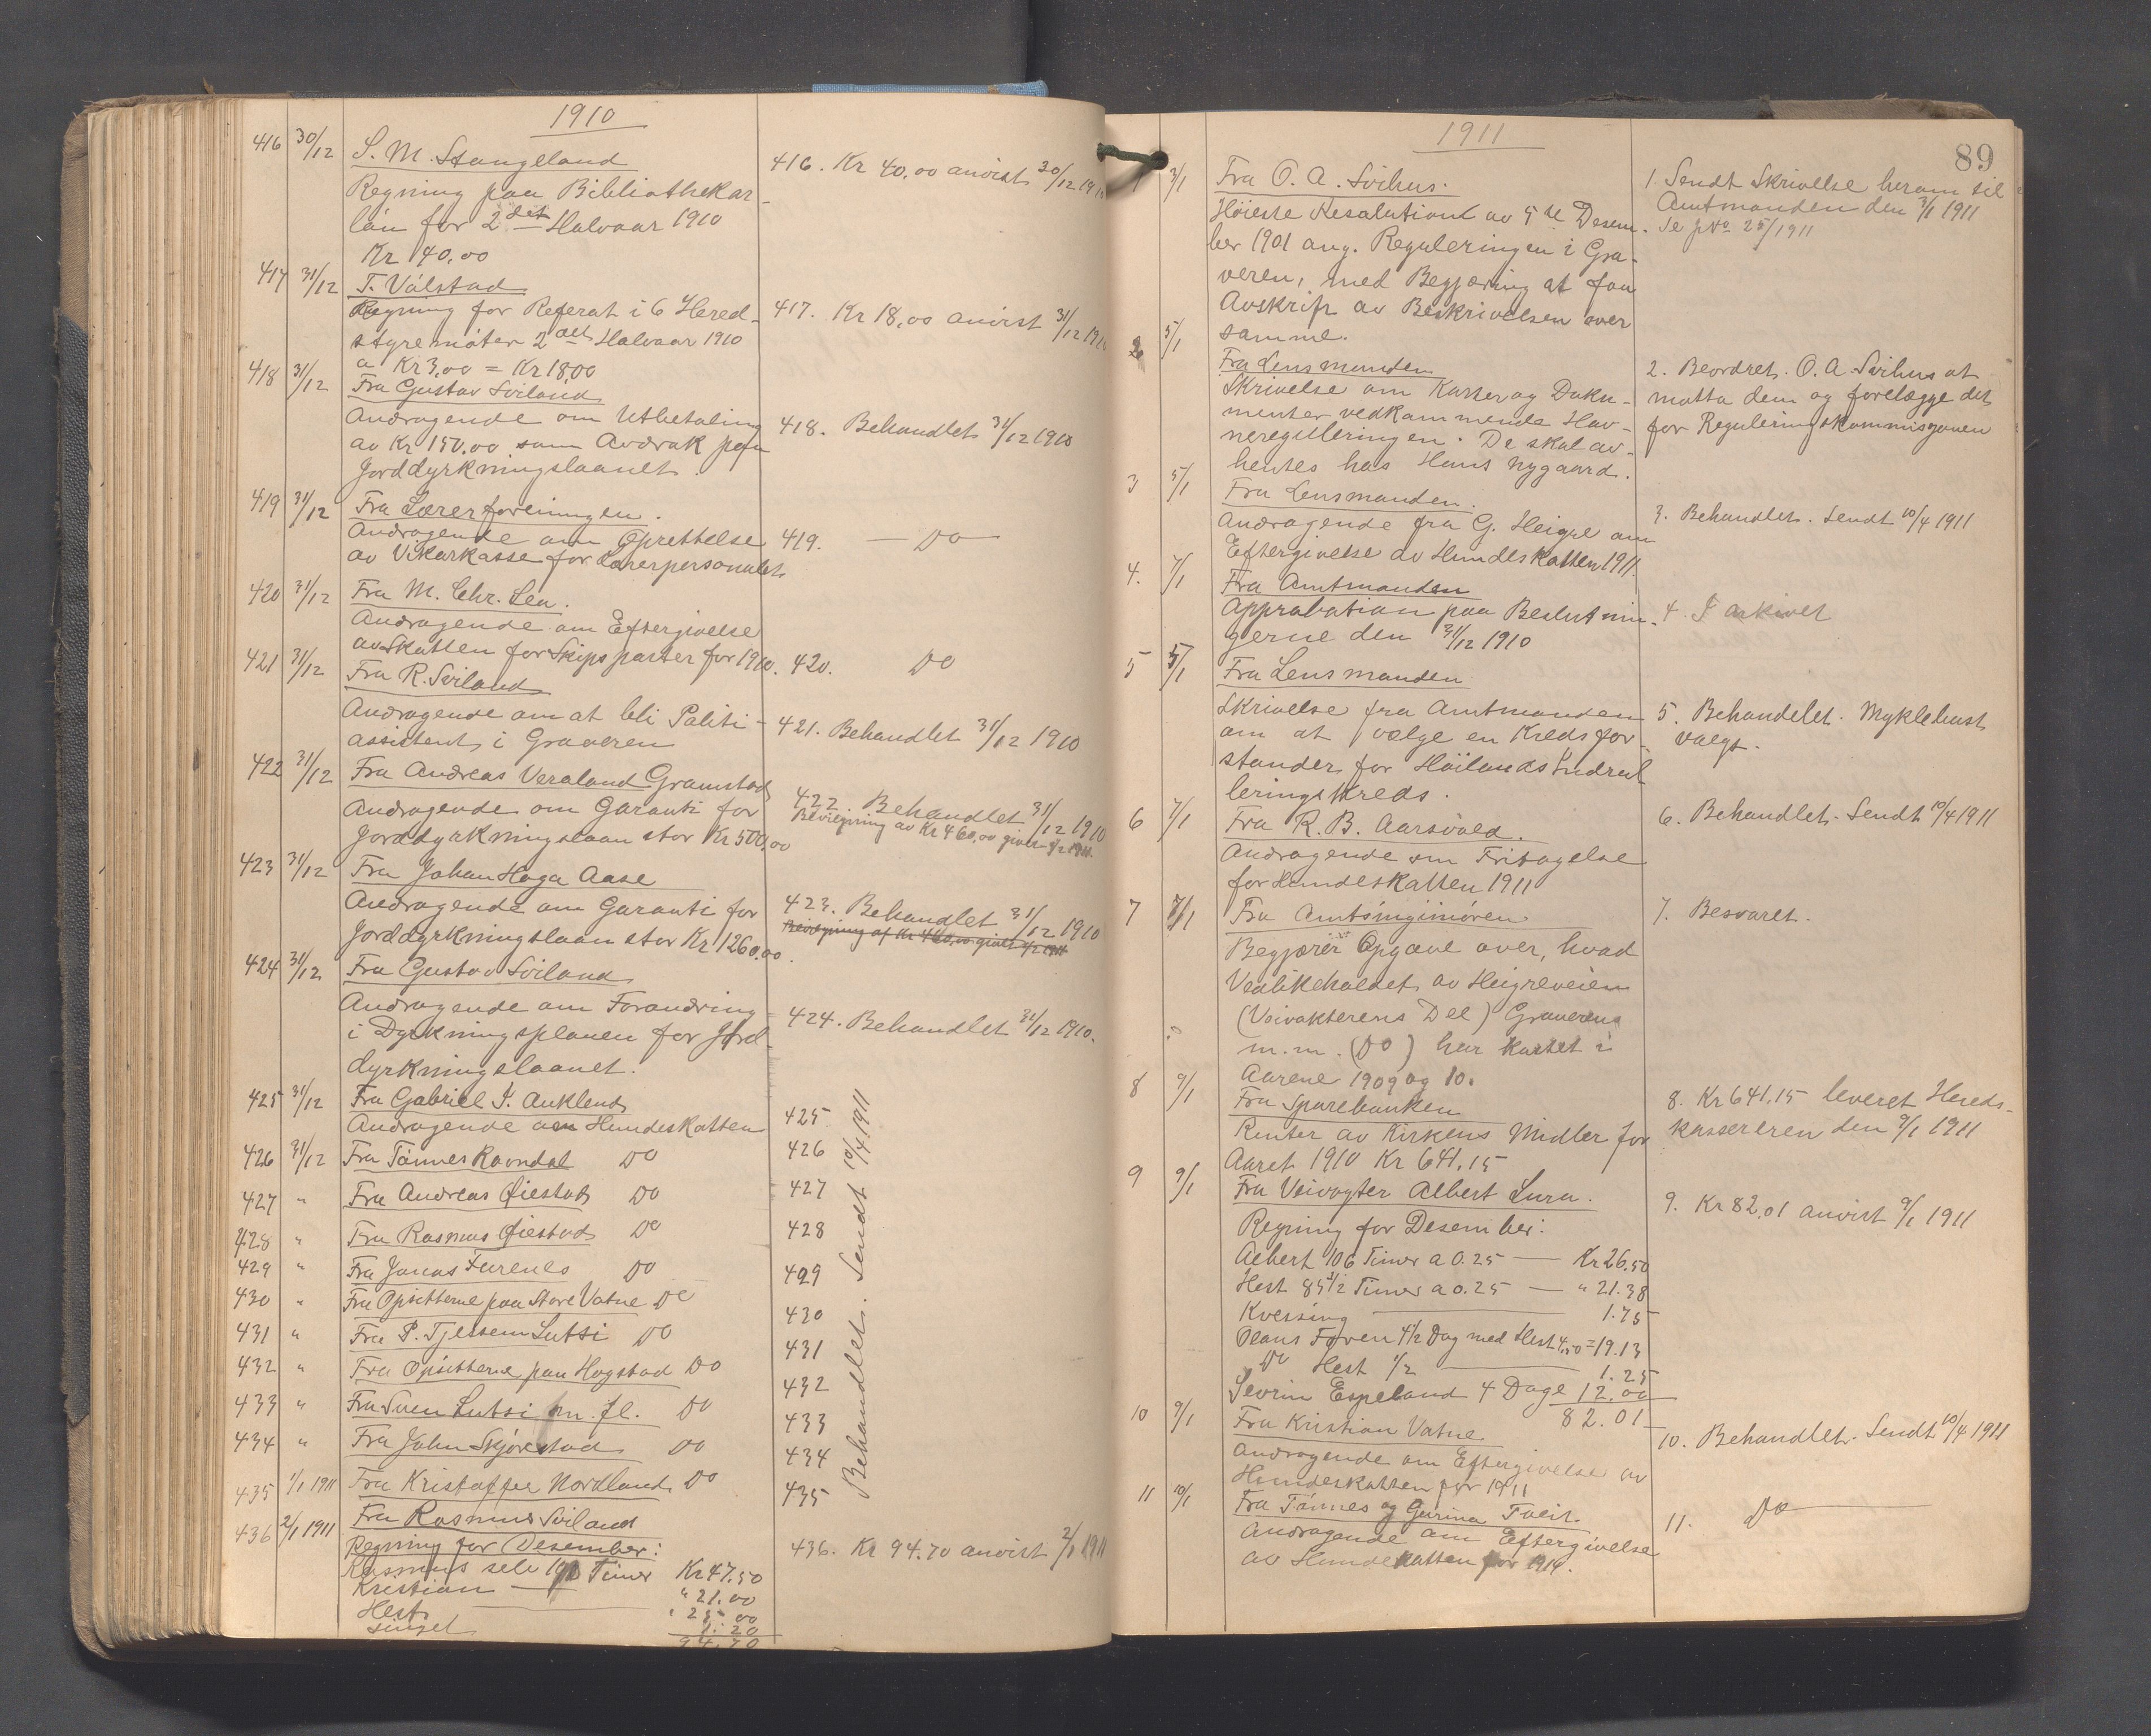 1910
416 30/12 S. M. Stangeland
Regning paa Bibliothekar-
løn for 2det Halvaar 1910
Kr 40.00
416. Kr 40.00 anvist 30/12 1910
417 31/12 T. Vålstad
Regning for Referat i 6 Hered-
styremøter 2det Halvaar 1910
a Kr 3.00 = Kr 18.00
417. Kr 18.00 anvist 31/12 1910
418 31/12 Fra Gustav Sviland
Andragende om Utbetaling
av Kr 150.00 som Avdrak paa
Jorddyrkningslaanet.
418. Behandlet 31/12 1910
419 31/12 Fra Lærerforeningen.
Andragende om Oprettelse
av Vikarkasse for Lærerpersonalet
419. — Do —
420 31/12 Fra M. Chr. Lea.
Andragende om Eftergivelse
av Skatten for Skipsparter for 1910.
420. Do
421 31/12 Fra R. Sviland
Andragende om at bli Politi-
assistent i Graveren
421. Behandlet 31/12 1910
422 31/12 Fra Andreas Veraland Gramstad
Andragende om Garanti for
Jorddyrkningslaan stor Kr 500.00
422. Behandlet 31/12 1910
Bevilgning av Kr 460.00 givet 1/2 1911
423 31/12 Fra Johan Haga Aase
Andragende om Garanti for
Jorddyrkningslaan stor Kr 1260.00.
423. Behandlet 31/12 1910
Bevilgning af Kr 460.00 givet 1/2 1911
424 31/12 Fra Gustav Sviland
Andragende om Forandring
i Dyrkningsplanen for Jord-
dyrkningslaanet.
424. Behandlet 31/12 1910.
425 31/12 Fra Gabriel T. Auklend
Andragende om Hundeskatten
426 31/12 Fra Tønnes Ravndal Do
427 " Fra Andreas Øiestad Do
428 " Fra Rasmus Øiestad Do
429 " Fra Jonas Furenes Do
430 " Fra Opsitterne paa Store Vatne Do
431 " Fra P. Tjessem Lutsi Do
432 " Fra Opsitterne paa Hogstad Do
433 " Fra Sven Lutsi m. fl. Do
434 " Fra John Skjørestad Do
435 1/1 1911 Fra Kristoffer Nordland Do
425.
426
427
428
429
430
431
432
433
434
435
Behandlet. Sendt 10/4 1911
436 2/1 1911 Fra Rasmus Sviland
Regning for Desember:
Rasmus selv 190 Timer Kr 47.50
Kristian — " 21.00
Hest " 25.00
Singel 1.20
94.70
436. Kr 94.70 anvist 2/1 1911
1911
89
1 3/1 Fra O. A. Svihus.
Høieste Resolution av 5te Desem-
ber 1901 ang. Reguleringen i Gra-
veren, med Begjæring at faa
Avskrift av Beskrivelsen over
samme.
1. Sendt Skrivelse herom til
Amtmanden den 3/1 1911
Se pNo 25/1911
2 5/1 Fra Lensmanden
Skrivelse om Karter og Doku-
menter vedkommende Hav-
nereguleringen. De skal av-
hentes hos Hans Nygaard.
2. Beordret O. A. Svihus at
motta dem og forelægge det
for Reguleringskommisjonen
3 5/1 Fra Lensmanden.
Andragende fra G. Heigre om
Eftergivelse av Hundeskatten 1911.
3. Behandlet. Sendt 10/4 1911
4. 7/1 Fra Amtmanden
Approbation paa Beslutnin-
gerne den 31/12 1910
4. I arkivet
5 5/1 Fra Lensmanden
Skrivelse fra Amtmanden
om at vælge en Kredsfor-
stander for Høilands Indrul-
leringskreds.
5. Behandelet. Myklebust
valgt.
6 7/1 Fra R. B. Aarsvold.
Andragende om Fritagelse
for Hundeskatten 1911
6. Behandlet. Sendt 10/4 1911
7 7/1 Fra Amtsingeniøren
Begjærer Opgave over, hvad
Vedlikeholdet av Heigreveien
(Veivokterens Del) Graveren
m.m. (Do) har kostet i
Aarene 1909 og 10.
7. Besvaret.
8 9/1 Fra Sparebanken
Renter av Kirkens Midler for
Aaret 1910 Kr 641.15
8. Kr 641.15 leveret Hereds-
kassereren den 9/1 1911
9 9/1 Fra Veivogter Albert Lura.
Regning for Desember:
Albert 106 Timer a 0.25 — Kr 26.50
Hest 85 1/2 Timer a 0.25 — " 21.38
Kvessing — 1.75
Olaus Foren 4 1/2 Dag med Hest 4.50 = 19.13
Do Hest 1/2 — 1.25
Sevrin Espeland 4 Dage 12.00
82.01
9. Kr 82.01 anvist 9/1 1911
10 9/1 Fra Kristian Vatne
Andragende om Eftergivelse av
Hundeskatten for 1911
10. Behandlet. Sendt 10/4 1911
11 10/1 Fra Tønnes og Gurina Tveit.
Andragende om Eftergivelse
av Hundeskatten for 1911.
11. Do —